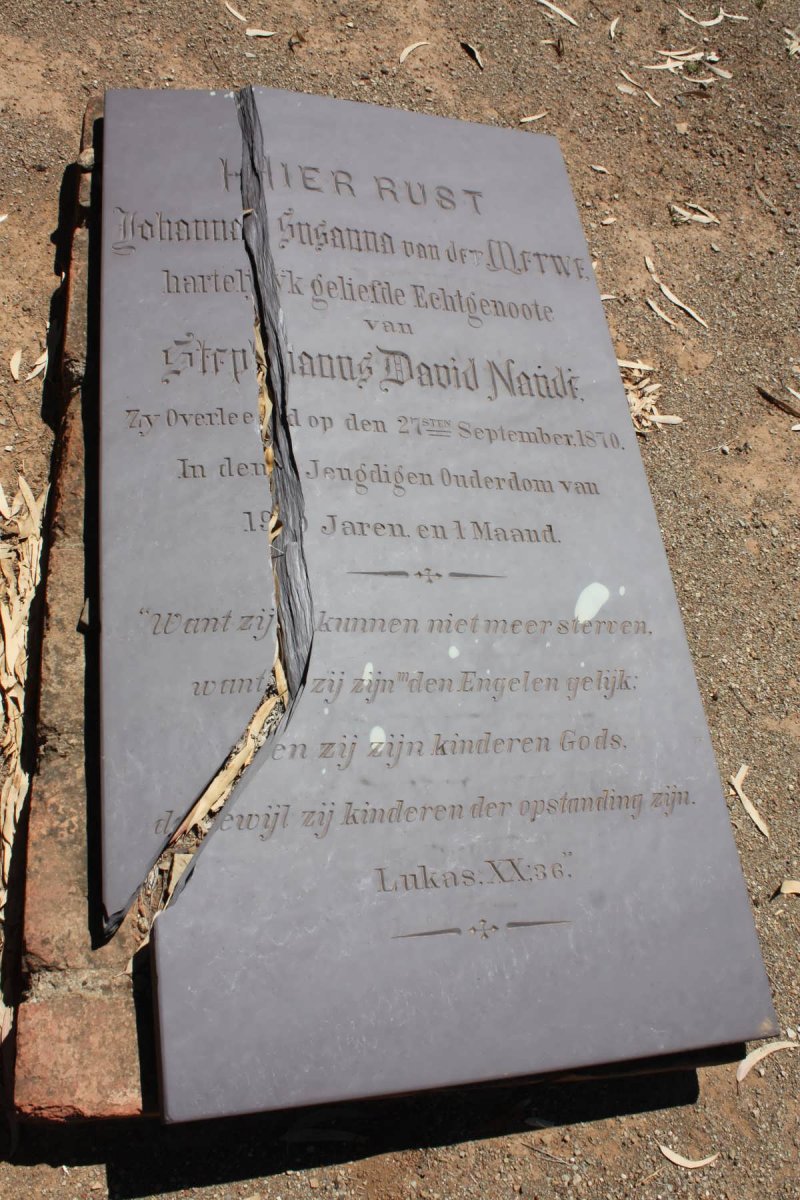 HIER RUST
Johanna Susanna van der Merwe,
hartelijk geliefde Echtgenoote
van
Stephanus David Naudé,
Zy Overleed op den 27STEN September.1870.
In den Jeugdigen Ouderdom van
Jaren. en 1 Maand.
"Want zij kunnen niet meer sterven,
want zij zijn den Engelen gelijk;
en zij zijn kinderen Gods,
dewijl zij kinderen der opstanding zijn.
Lukas. XX:36."